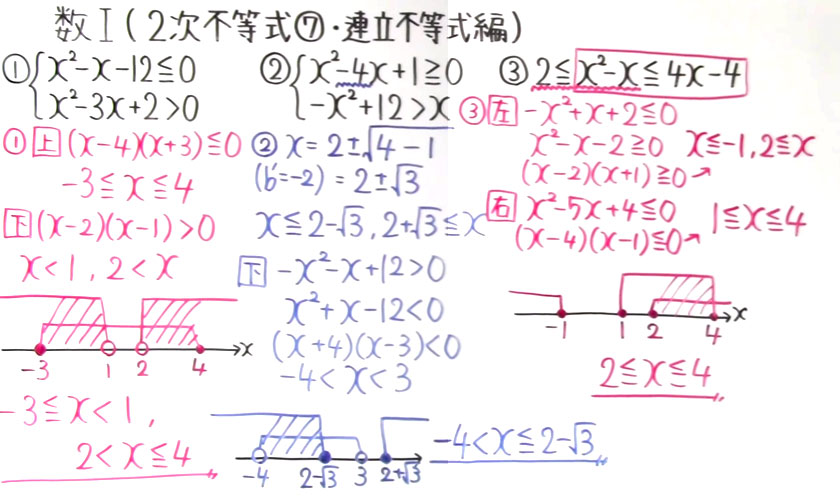 数I(2次不等式⑦・連立不等式編)
① { x²-x-12≦0
x²-3x+2>0
② { x²-4x+1≧0
-x²+12>x
③ 2≦x²-x≦4x-4
① 上 (x-4)(x+3)≦0
-3≦x≦4
下 (x-2)(x-1)>0
x<1, 2<x
-3 1 2 4 x
-3≦x<1,
2<x≦4
② x=2±√4-1
(b'=-2) =2±√3
x≦2-√3, 2+√3≦x
下 -x²-x+12>0
x²+x-12<0
(x+4)(x-3)<0
-4<x<3
-4 2-√3 3 2+√3
-4<x≦2-√3
③ 左 -x²+x+2≦0
x²-x-2≧0 x≦-1, 2≦x
(x-2)(x+1)≧0↗
右 x²-5x+4≦0 1≦x≦4
(x-4)(x-1)≦0↗
-1 1 2 4 x
2≦x≦4